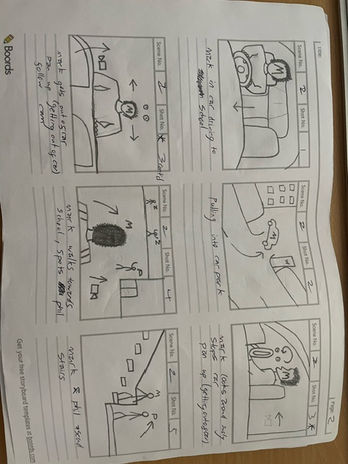 Title:
Page: 2
Scene No. 2 Shot No. 1
Scene No. 2 Shot No. 2
Scene No. 2 Shot No. 3*
M
M
Mark in car driving to
school
Pulling into car park
Mark looks around
stops car
Pan up (getting out of car)
Scene No. 2 Shot No. * 3 contd
Scene No. 2 Shot No. 4
Scene No. 2 Shot No. 5
M
M
P
M
P
Mark gets out of car
Pan up (getting out of car)
follow cam
Mark walks towards
school, spots phil
Mark & Phil ascend
stairs
Boords
Get your free storyboard templates at boords.com